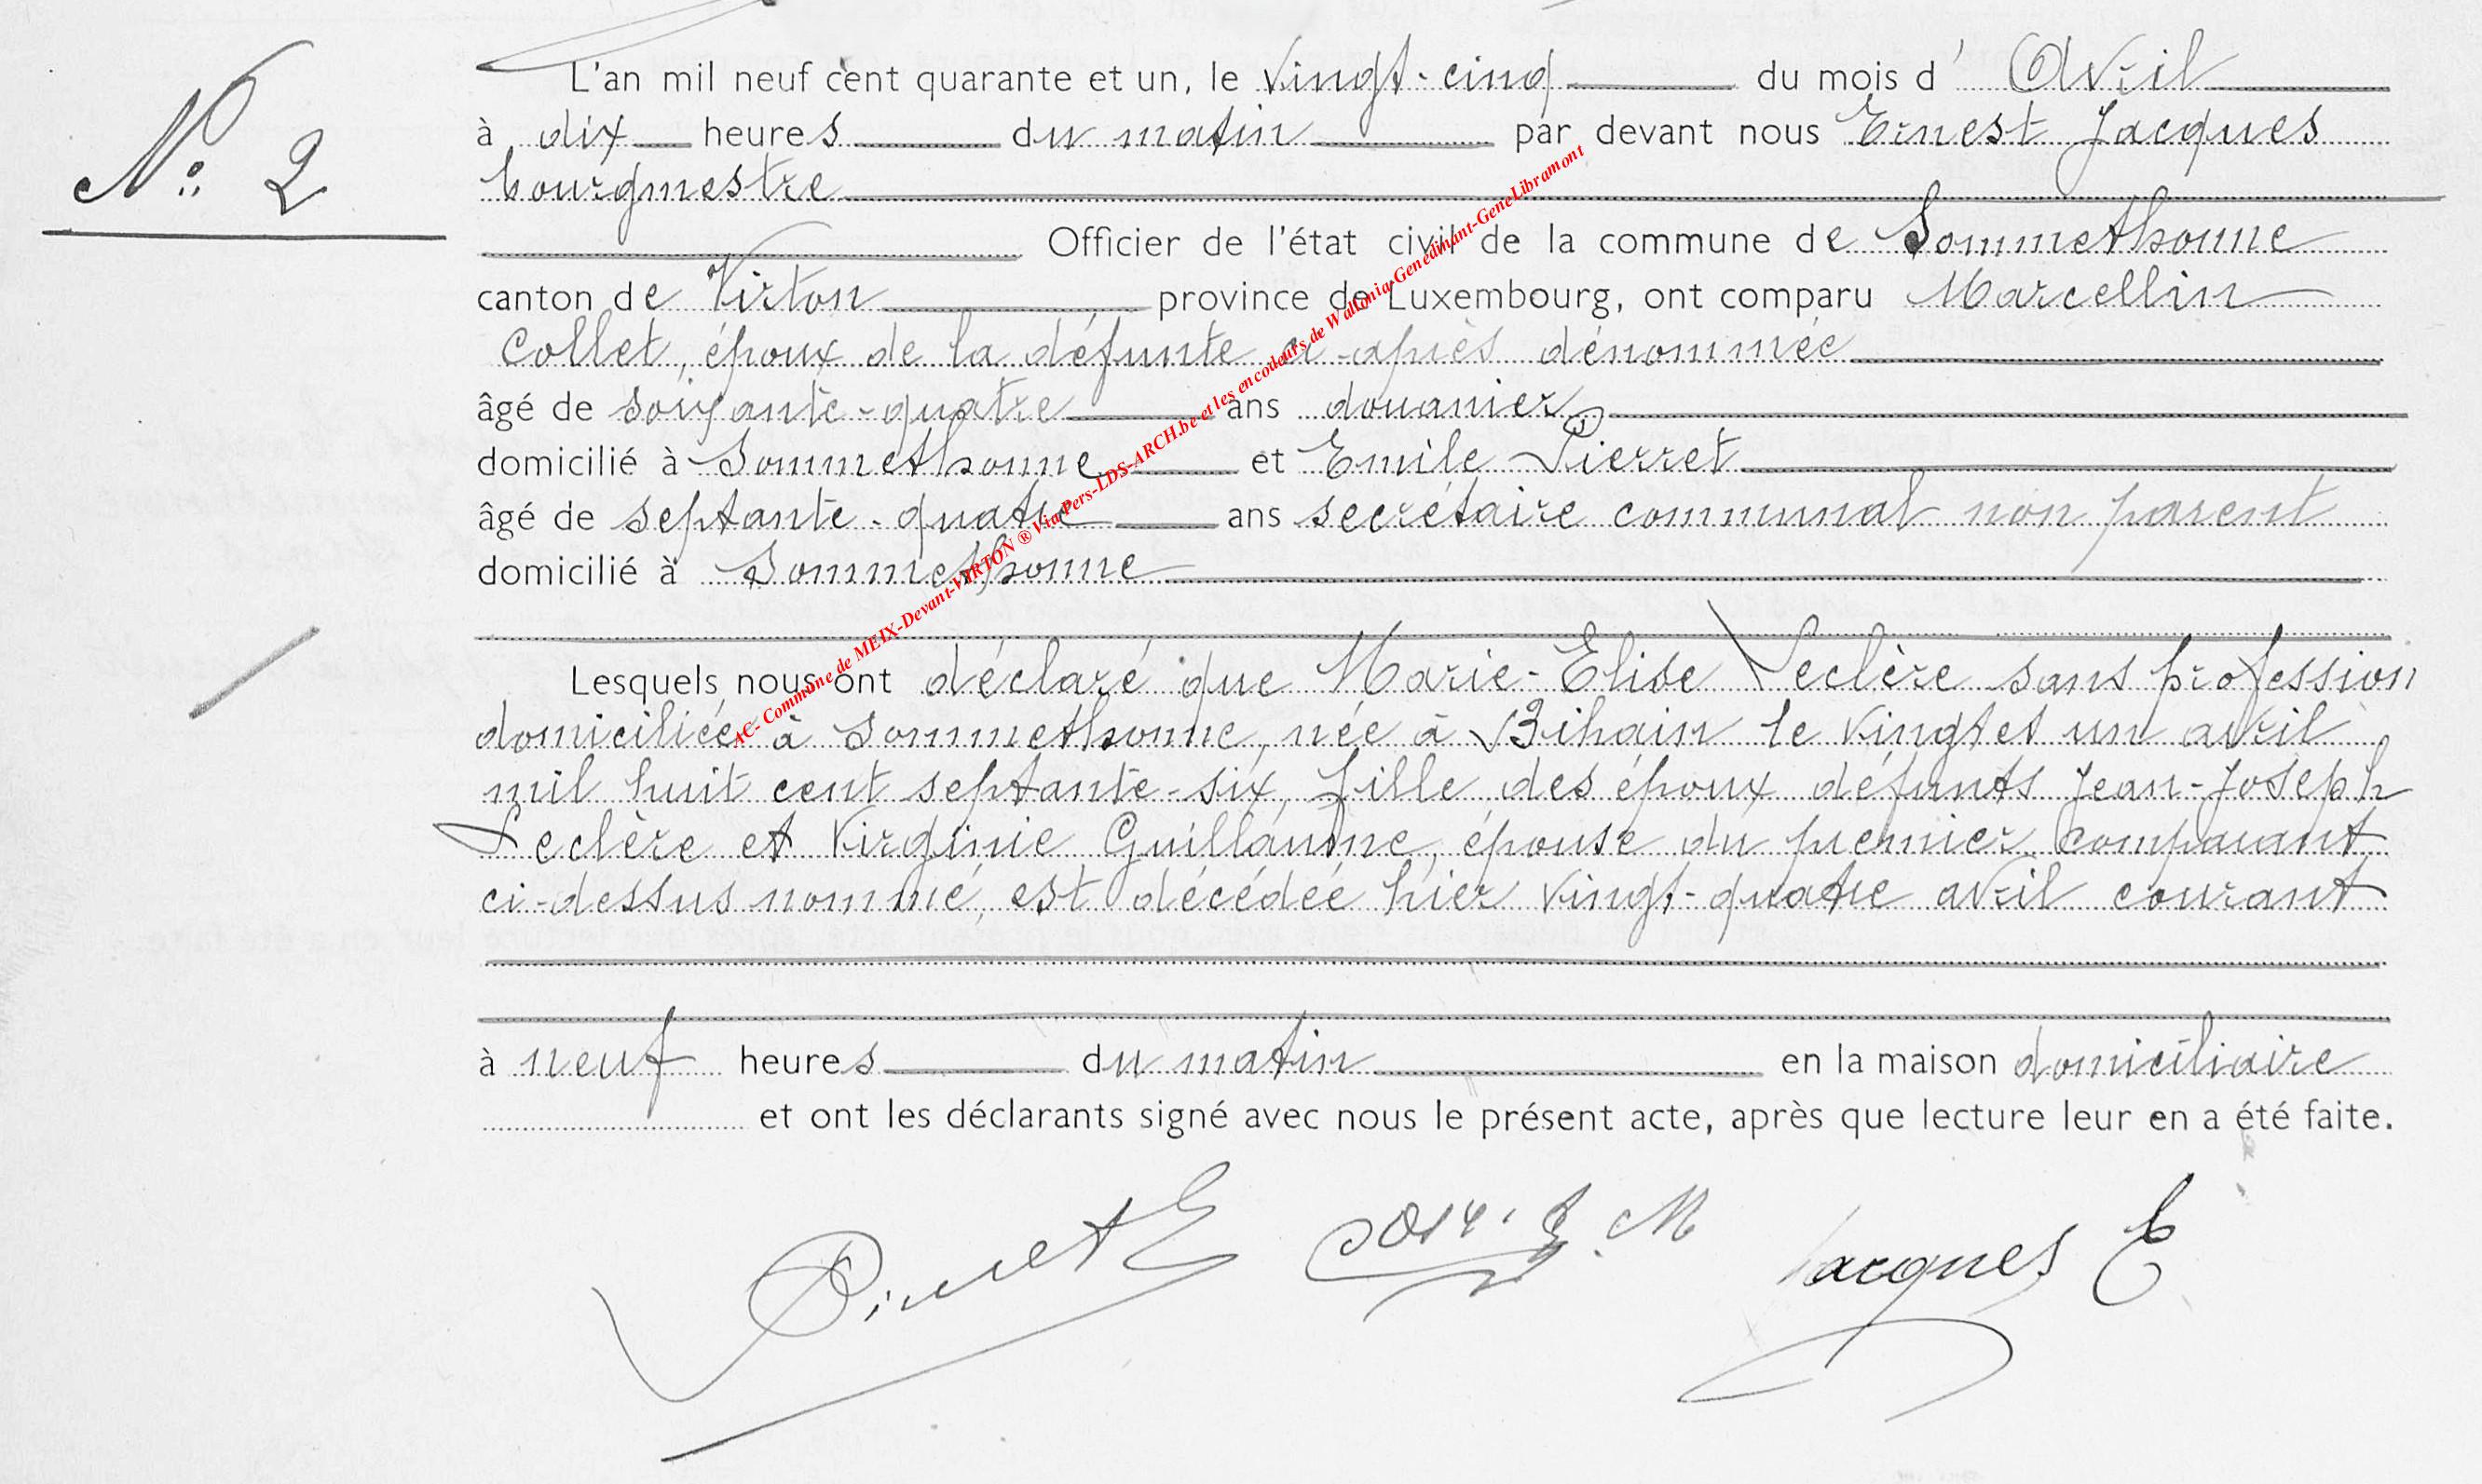 N° 2
L'an mil neuf cent quarante et un, le vingt-cinq du mois d'Avril
à dix heures du matin par devant nous Ernest Jacques
bourgmestre
Officier de l'état civil de la commune de Sommethonne
canton de Virton province de Luxembourg, ont comparu Marcellin
Collet, époux de la défunte ci-après dénommée
âgé de soixante-quatre ans douanier
domicilié à Sommethonne et Emile Pierret
âgé de septante-quatre ans secrétaire communal non parent
domicilié à Sommethonne
Lesquels nous ont déclaré que Marie-Elise Leclère sans profession
domiciliée à Sommethonne, née à Bihain le vingt et un avril
mil huit cent septante-six, fille des époux défunts Jean-Joseph
Leclère et Virginie Guillaume, épouse du premier comparant
ci-dessus nommé, est décédée hier vingt-quatre avril courant
à neuf heures du matin en la maison domiciliaire
et ont les déclarants signé avec nous le présent acte, après que lecture leur en a été faite.
Pierret E
Jacques E
AC- Commune de MEIX-Devant-VIRTON ® Via Pers-LDS-ARCH.be et les encodeurs de Wallonia-Genedinant-GeneLibramont